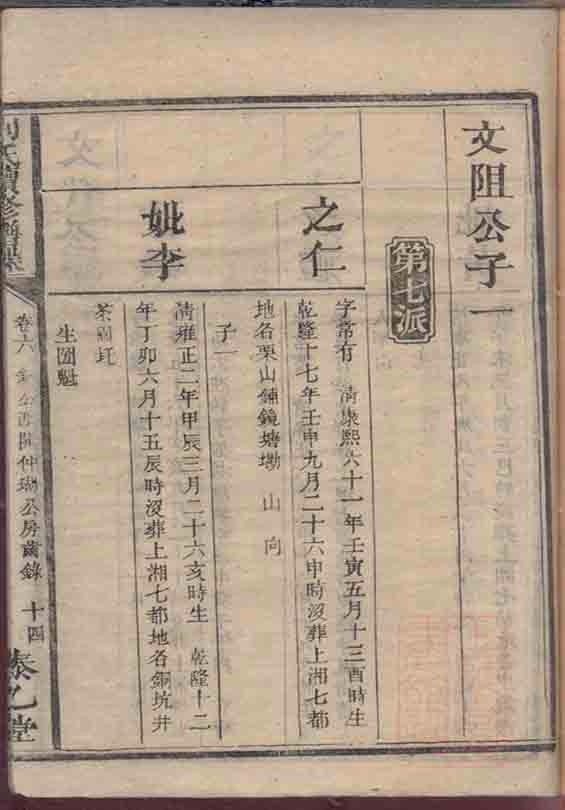 文阻公子一
第七派
之仁
字常有 清康熙六十一年壬寅五月十三酉時生
乾隆十七年壬申九月二十六申時沒葬上湘七都
地名栗山鋪鏡塘坳 山 向
子一
妣李
清雍正二年甲辰三月二十六亥時生 乾隆十二
年丁卯六月十五辰時沒葬上湘七都地名銅坑井
茶園圫
生國魁
氏續修
卷六 公房齒錄 十四
泰乙堂